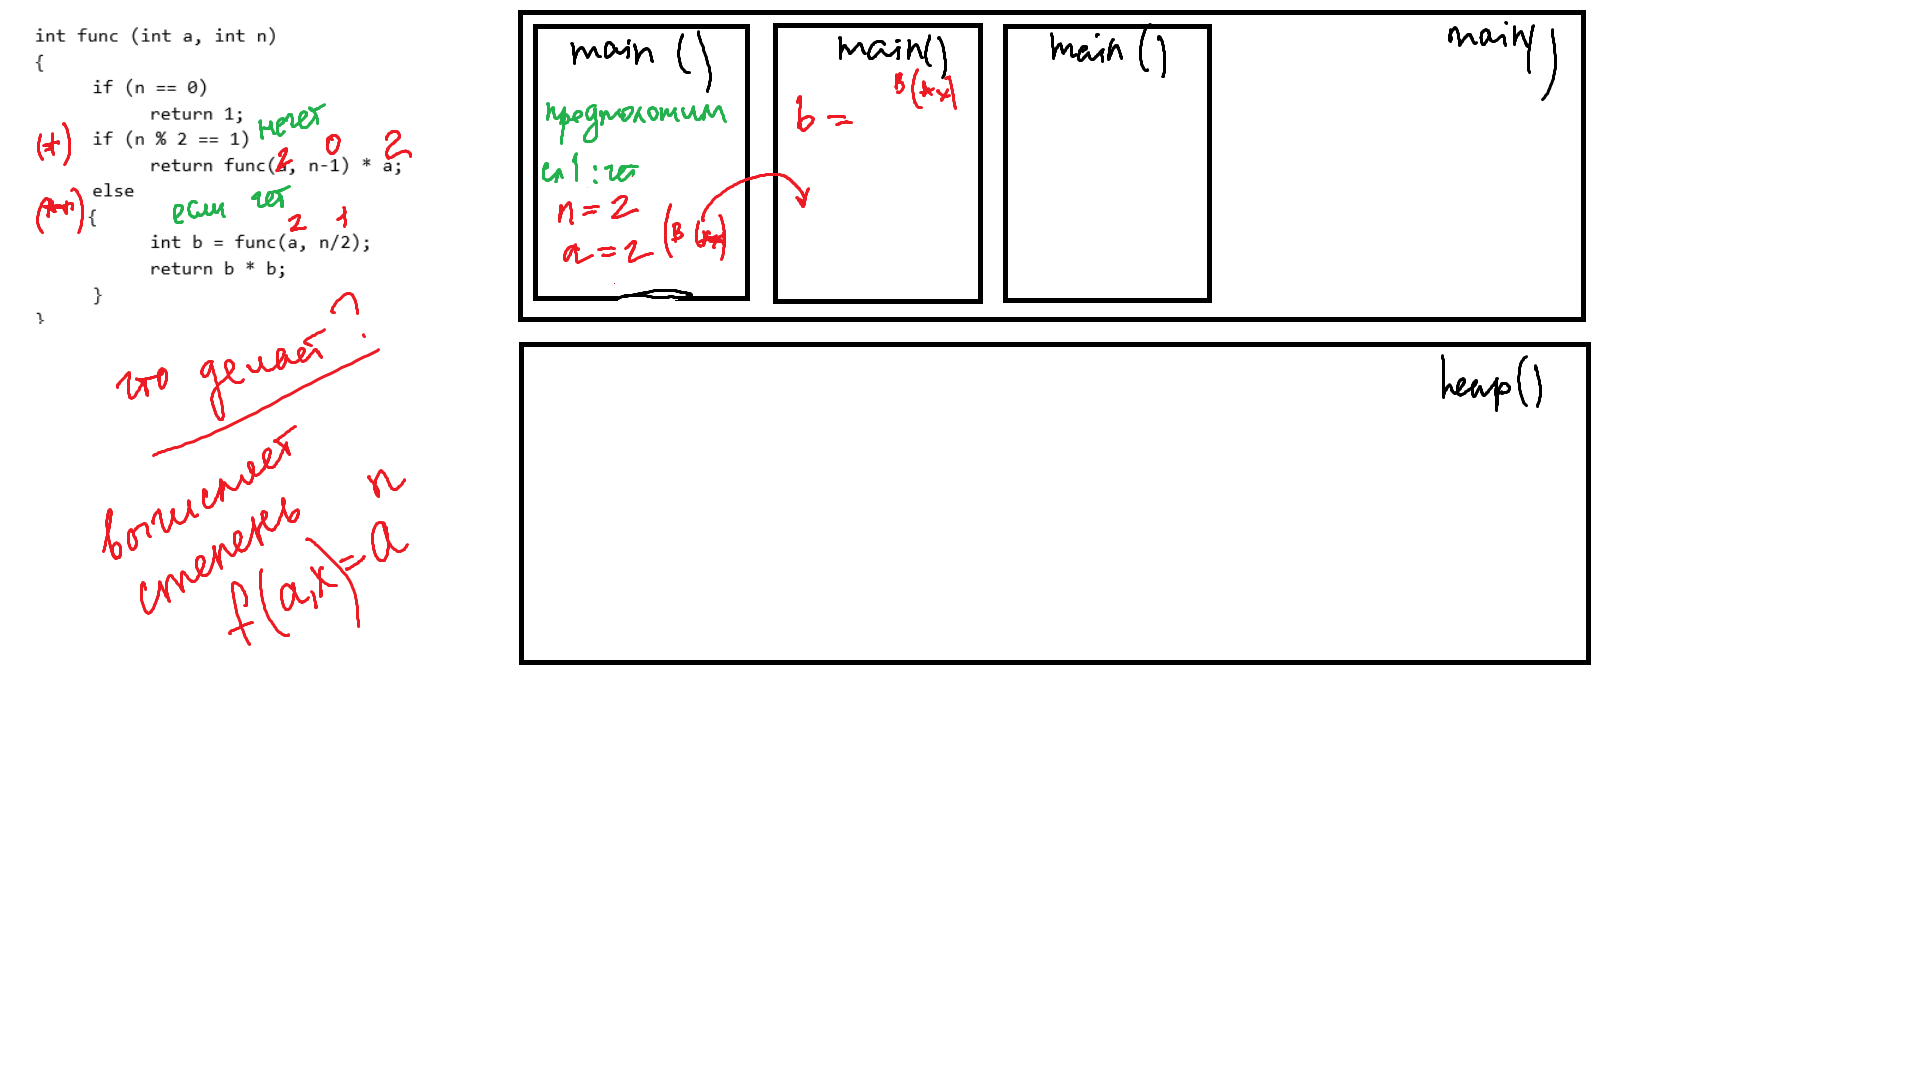 int func (int a, int n)
{
if (n == 0)
return 1;
нечет
(*) if (n % 2 == 1)
2 0 2
return func(a, n-1) * a;
else
(**) {
если чет
2 1
int b = func(a, n/2);
return b * b;
}
}
что делает?
вычисляет
степень
f(a,x)=a^n
main ()
предположим
сл 1 : чет
n = 2
a = 2 (в (**)
main()
в (**)
b =
main ()
main()
heap()